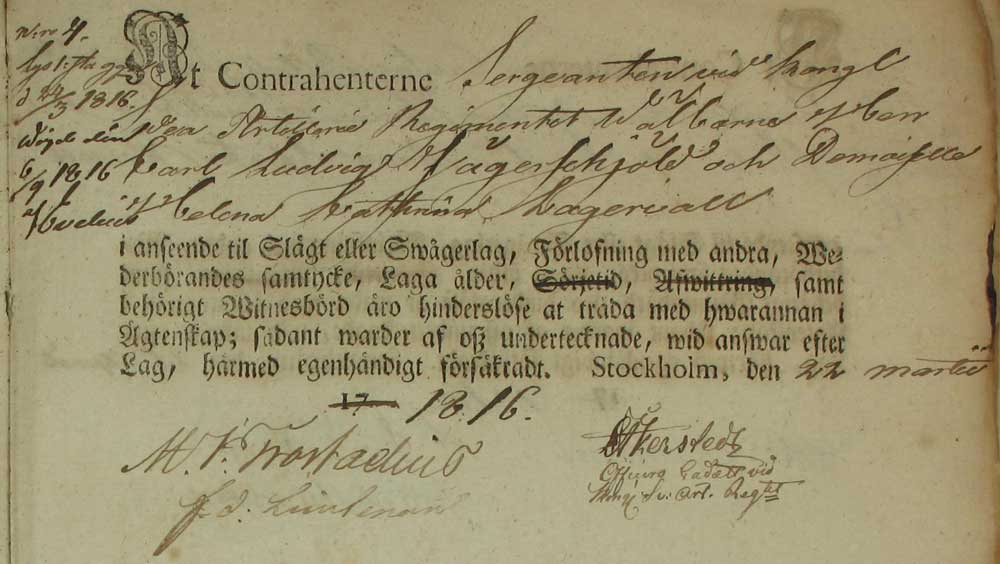 N:ro 4.
Lystes första ggn
d 24/3 1816.
Wigde den
6/9 1816
At Contrahenterne Sergeanten vid Kongl
Svea Artillerie Regimentet Wälborne Herr
Carl Ludvig Jägerschjöld och Demoiselle
Helena Cathrina Lagervall
i anseende til Slägt eller Swågerlag, Förlofning med andra, We-
derbörandes samtycke, Laga ålder, Sörjetid, Afwittring, samt
behörigt Witnesbörd äro hinderslöse at träda med hwarannan i
Ägtenskap; sådant warder af oß undertecknade, wid answar efter
Lag, härmed egenhändigt försäkradt. Stockholm, den 22 martii
17 1816.
M. F. Trostadius
f. d. Lieutenant
Åkerstedt
Officers Cadett vid
Kongl Sv: Art. Regtet